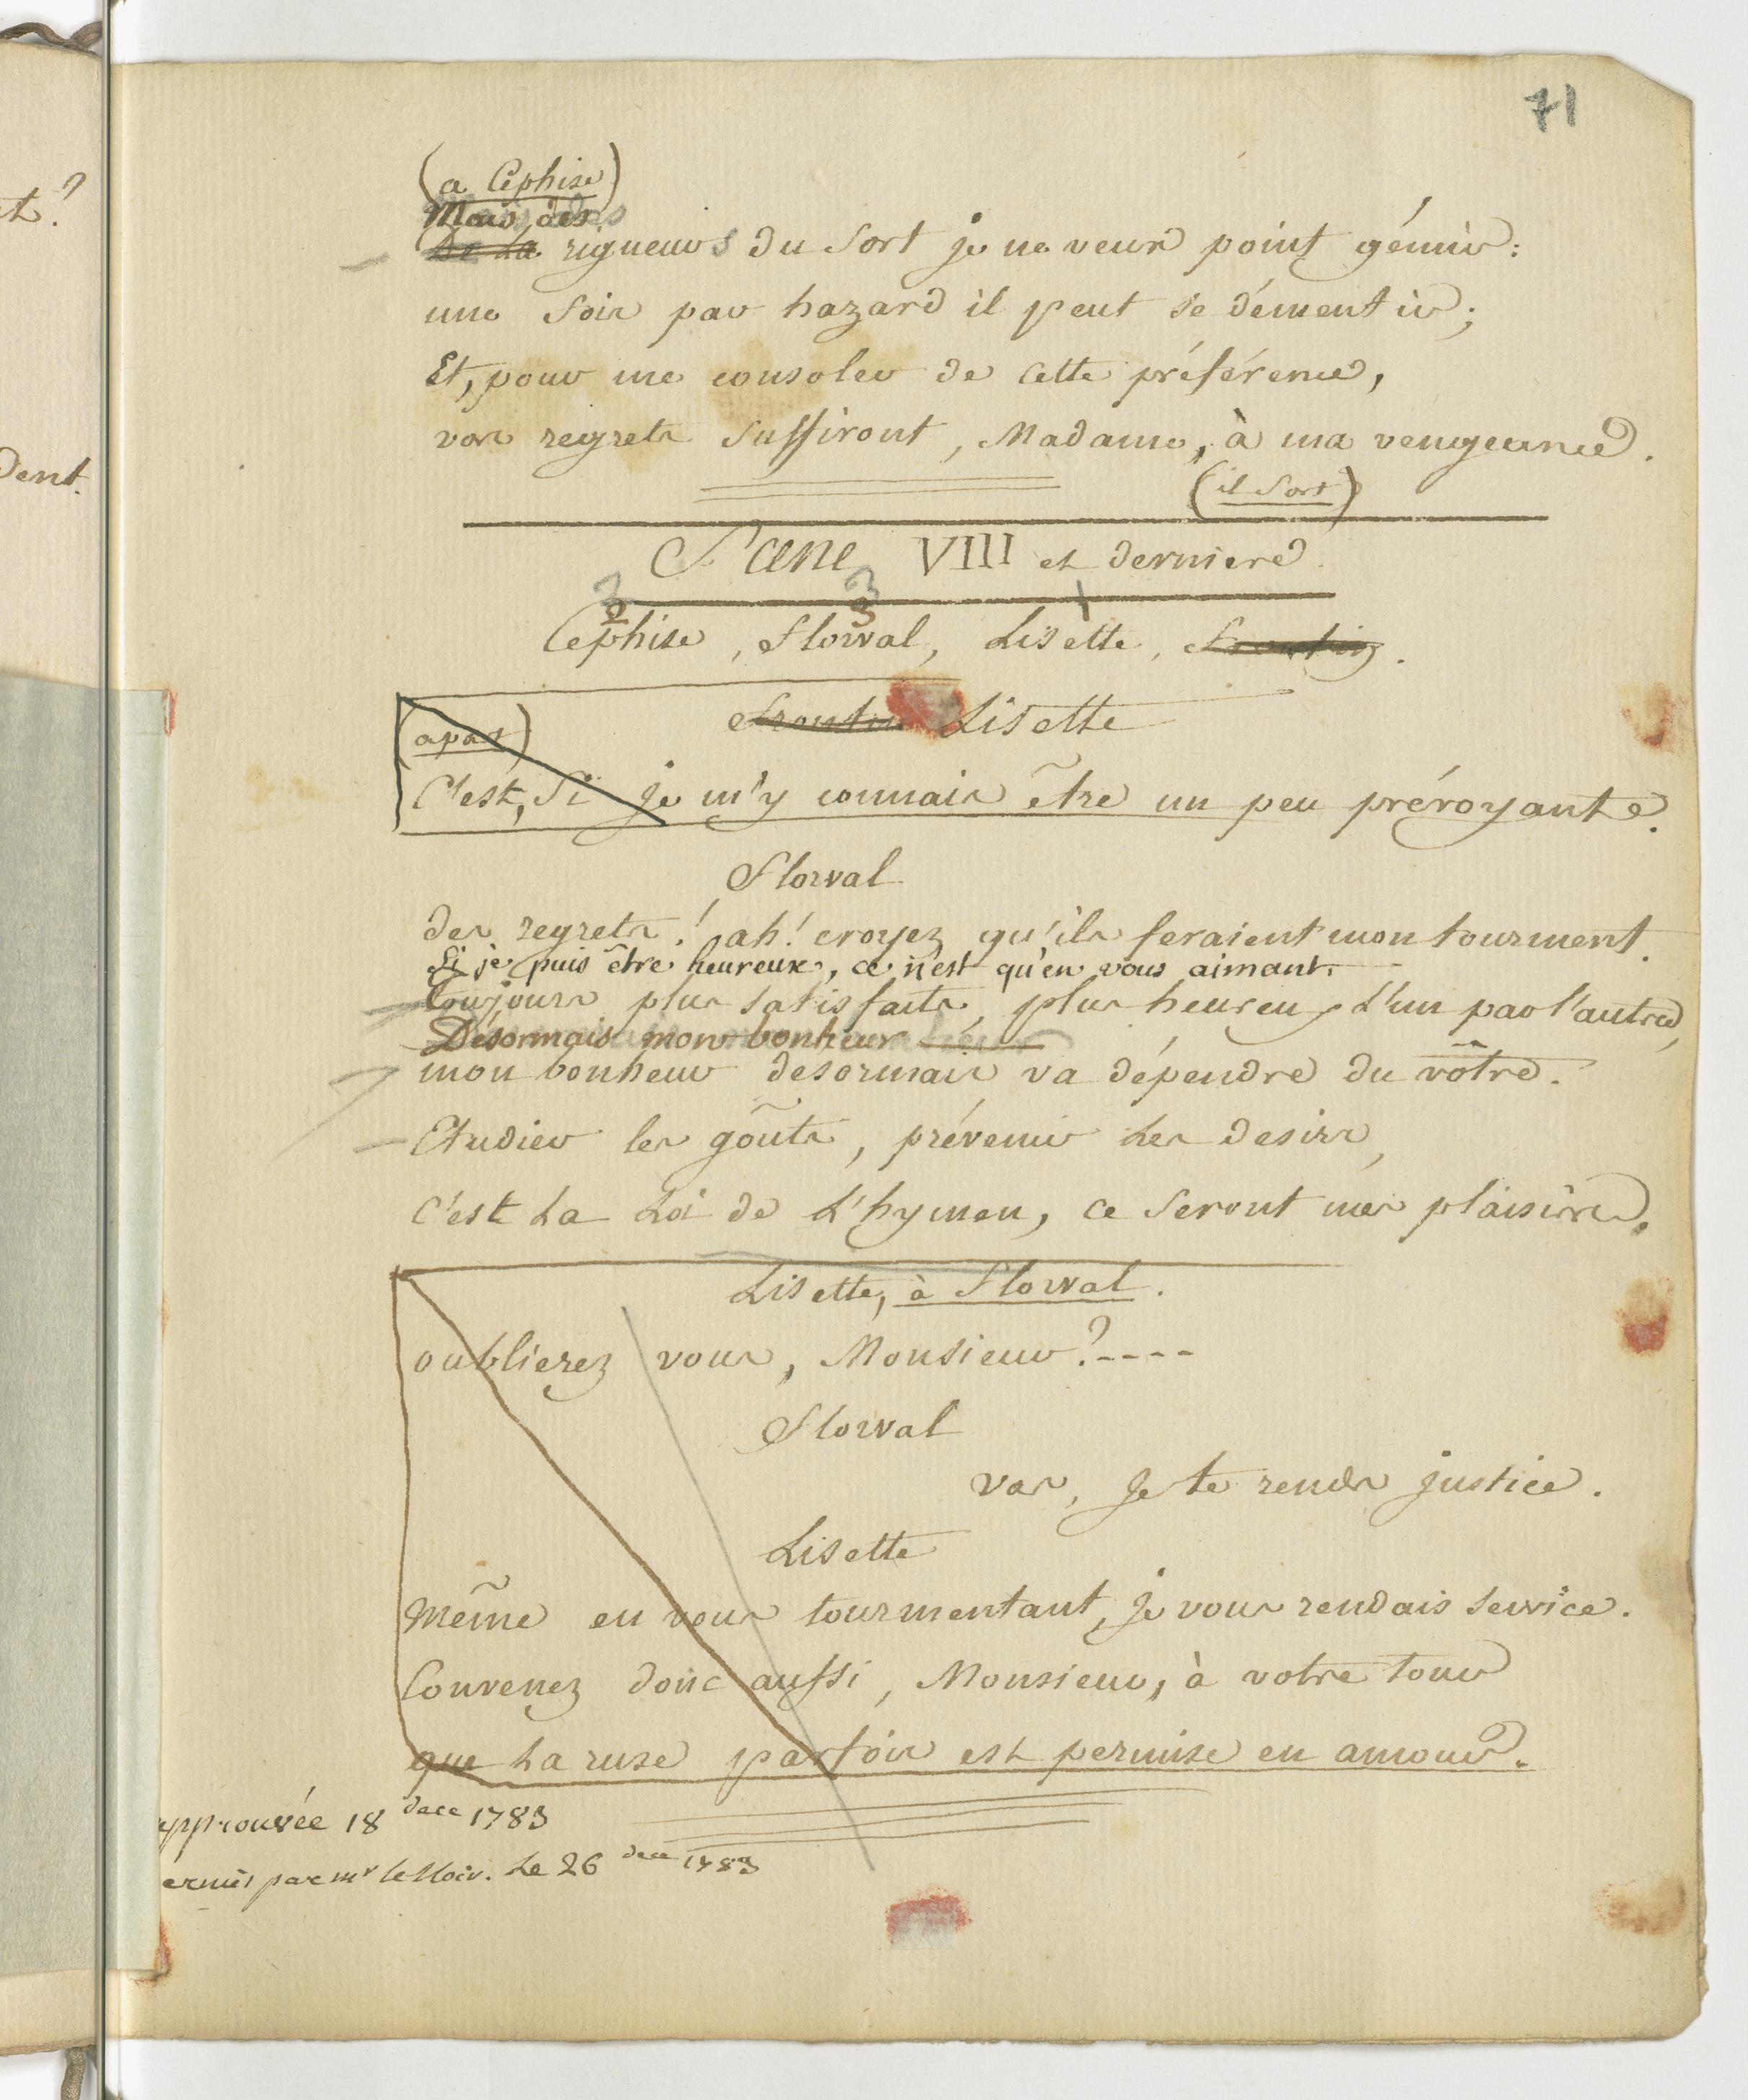 71
et?
dent.
(a Céphise)
Mais des
De La rigueurs du Sort je ne veux point gémir:
une fois par hazard il peut se démentir;
Et, pour me consoler de cette préférence,
vos regrets Suffiront, Madame, à ma vengeance.
(il Sort)
Scene VIII et derniere
2 3 1
2 3
Cephise, Florval, Lisette, Frontin.
Frontin Lisette
(apart)
C'est, Si je m'y connais être un peu prévoyante.
Florval
des regrets! ah! croyez qu'ils feraient mon tourment.
Si je puis être heureux, ce n'est qu'en vous aimant.
Toujours plus satisfaits, plus heureux L'un par l'autre,
Désormais mon bonheur
mon bonheur desormais va dépendre du vôtre.
Etudier les goûts, prévenir les desirs,
C'est La Loi de L'hymen, ce Seront mes plaisirs.
Lisette, à Florval.
oublierez vous, Monsieur?----
Florval
vas, Je te rends justice.
Lisette
Même en vous tourmentant, Je vous rendais service.
Convenez donc aussi, Monsieur, à votre tour
que La ruse parfois est permise en amour.
approuvée 18 dece 1783
ermis par mr le Noir. Le 26 dece 1783